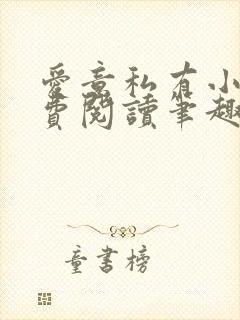 愛意私有小
費閱讀筆趣
童書榜